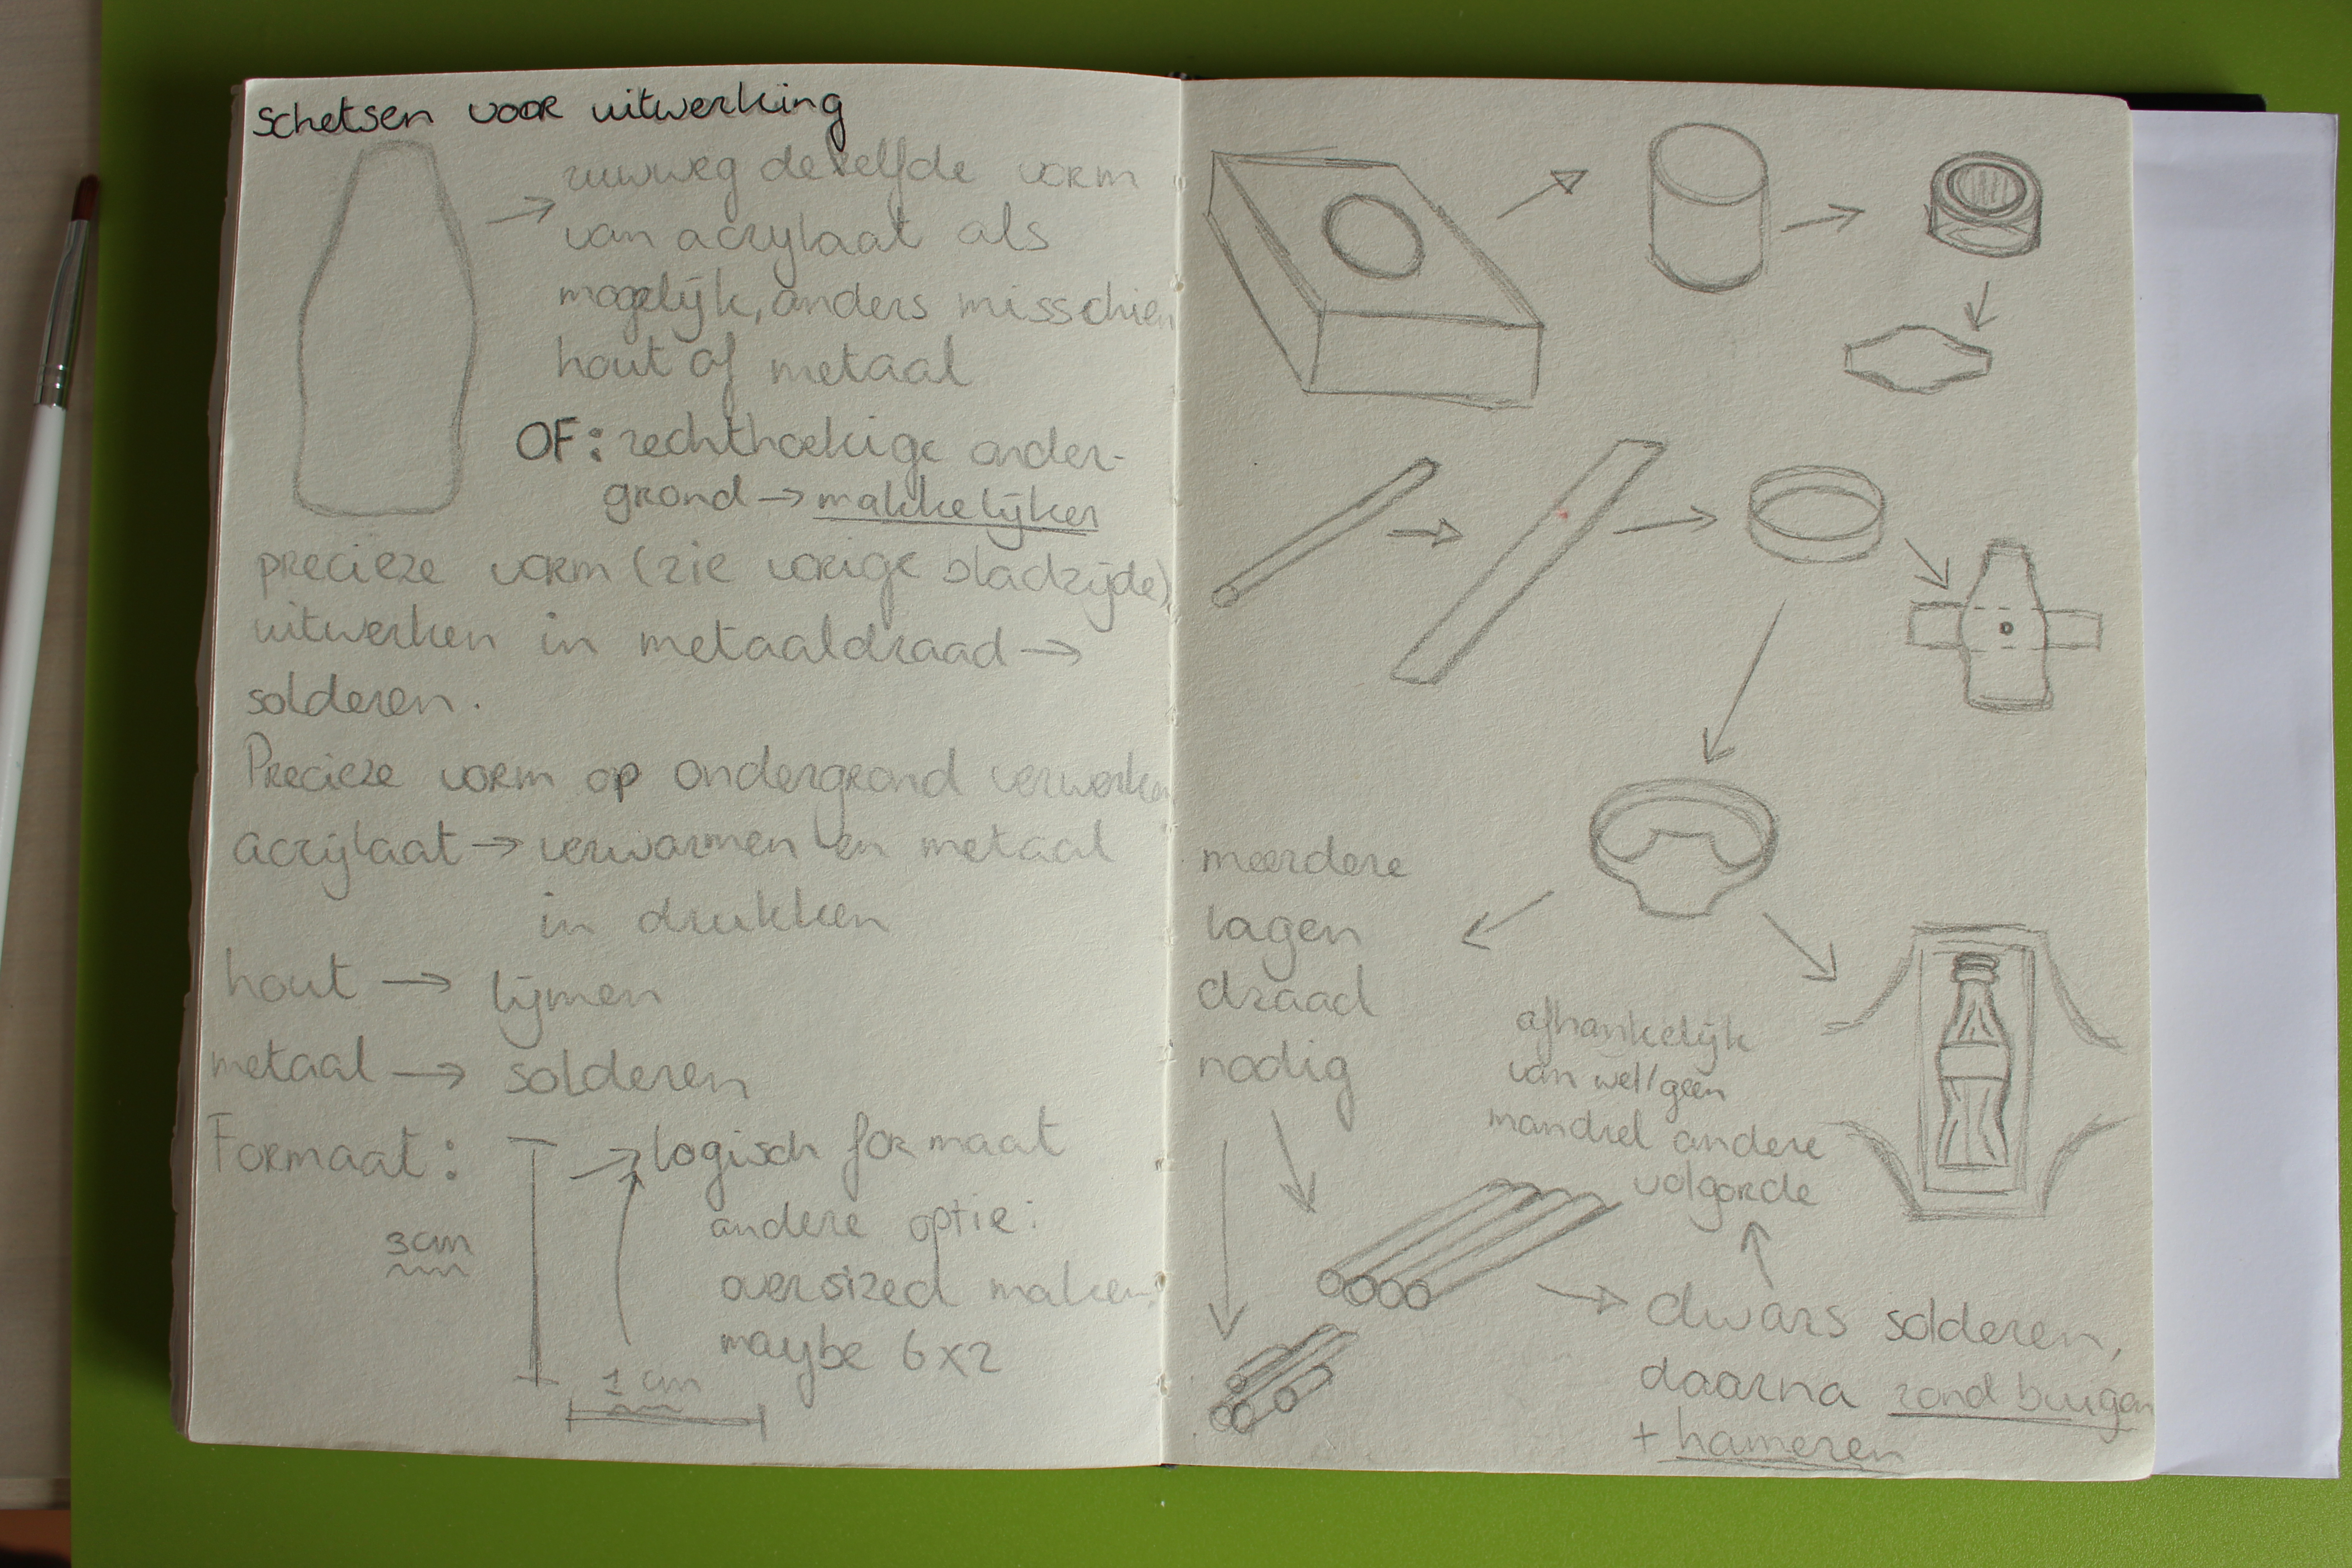 schetsen voor uitwerking
ruwweg dezelfde vorm
van acrylaat als
mogelijk, anders misschien
hout of metaal
OF: rechthoekige onder-
grond → makkelijker
precieze vorm (zie vorige bladzijde)
uitwerken in metaaldraad →
solderen.
Precieze vorm op ondergrond verwerken
acrylaat → verwarmen en metaal
in drukken
hout → lijmen
metaal → solderen
Formaat:
3cm
1 cm
→ logisch formaat
andere optie:
oversized maken:
maybe 6x2
meerdere
lagen
draad
nodig
afhankelijk
van wel/geen
mandrel andere
volgorde
dwars solderen,
daarna rond buigen
+ hameren